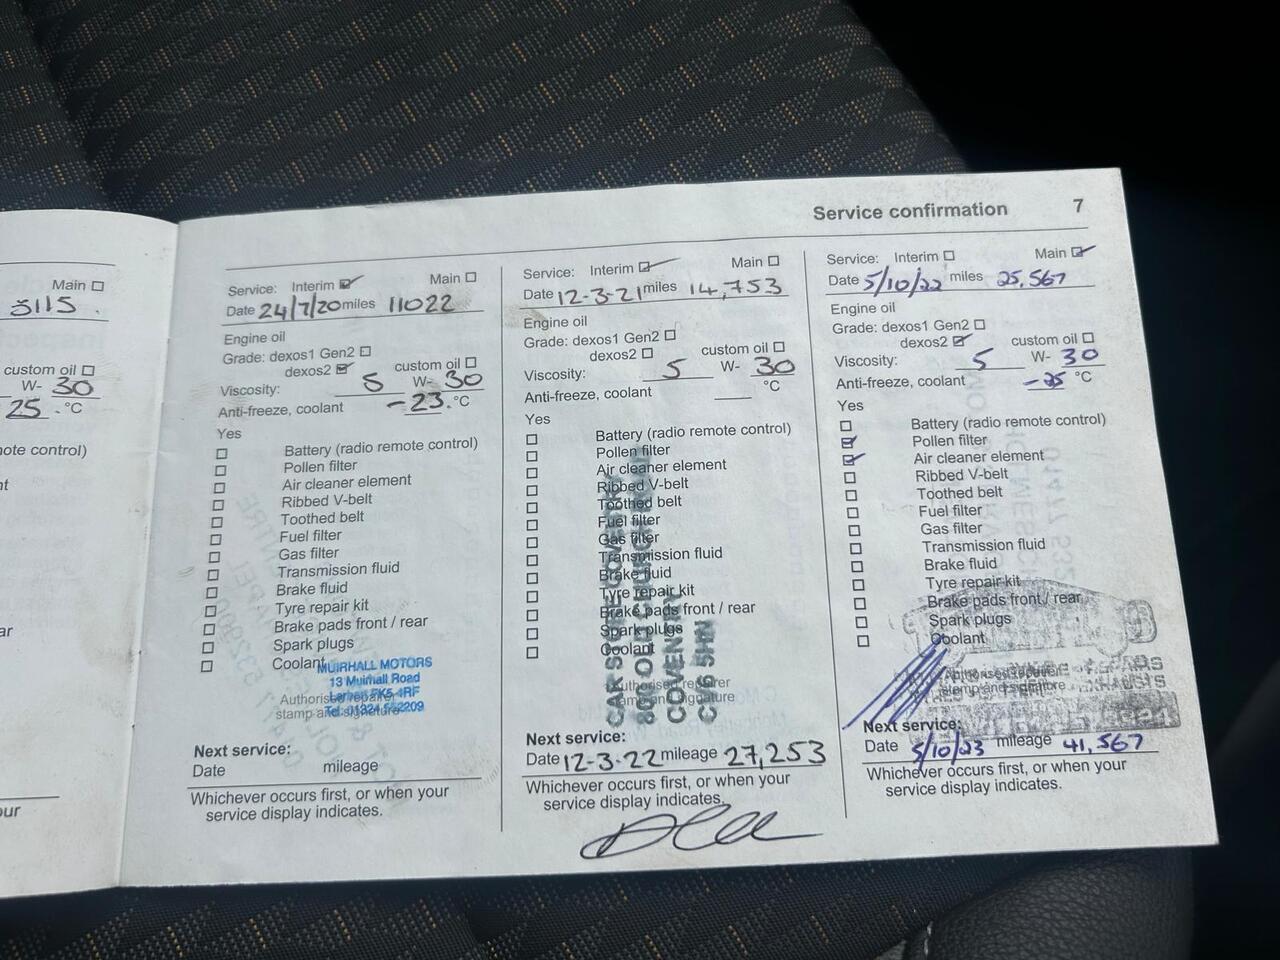 Service confirmation 7
Main
5115.
custom oil
W- 30
25.°C
ote control)
nt
ar
our
Service: Interim Main
Date 24/7/20 miles 11022
Engine oil
Grade: dexos1 Gen2
dexos2 custom oil
Viscosity: 5 W- 30
Anti-freeze, coolant -23.°C
Yes
Battery (radio remote control)
Pollen filter
Air cleaner element
Ribbed V-belt
Toothed belt
Fuel filter
Gas filter
Transmission fluid
Brake fluid
Tyre repair kit
Brake pads front / rear
Spark plugs
Coolant
MUIRHALL MOTORS
13 Muirhall Road
Larbert FK5 4RF
Authorised repairer
stamp and signature
Next service:
Date mileage
Whichever occurs first, or when your
service display indicates.
Service: Interim Main
Date 12-3-21 miles 14,753
Engine oil
Grade: dexos1 Gen2
dexos2 custom oil
Viscosity: 5 W- 30
Anti-freeze, coolant °C
Yes
Battery (radio remote control)
Pollen filter
Air cleaner element
Ribbed V-belt
Toothed belt
Fuel filter
Gas filter
Transmission fluid
Brake fluid
Tyre repair kit
Brake pads front / rear
Spark plugs
Coolant
Authorised repairer
stamp and signature
CAR STORE COVENTRY
800 OLD CHURCH ROAD
COVENTRY
CV6 5HN
Next service:
Date 12-3-22 mileage 27,253
Whichever occurs first, or when your
service display indicates.
Service: Interim Main
Date 5/10/22 miles 25,567
Engine oil
Grade: dexos1 Gen2
dexos2 custom oil
Viscosity: 5 W- 30
Anti-freeze, coolant -25 °C
Yes
Battery (radio remote control)
Pollen filter
Air cleaner element
Ribbed V-belt
Toothed belt
Fuel filter
Gas filter
Transmission fluid
Brake fluid
Tyre repair kit
Brake pads front / rear
Spark plugs
Coolant
Authorised repairer
stamp and signature
Next service:
Date 5/10/23 mileage 41,567
Whichever occurs first, or when your
service display indicates.